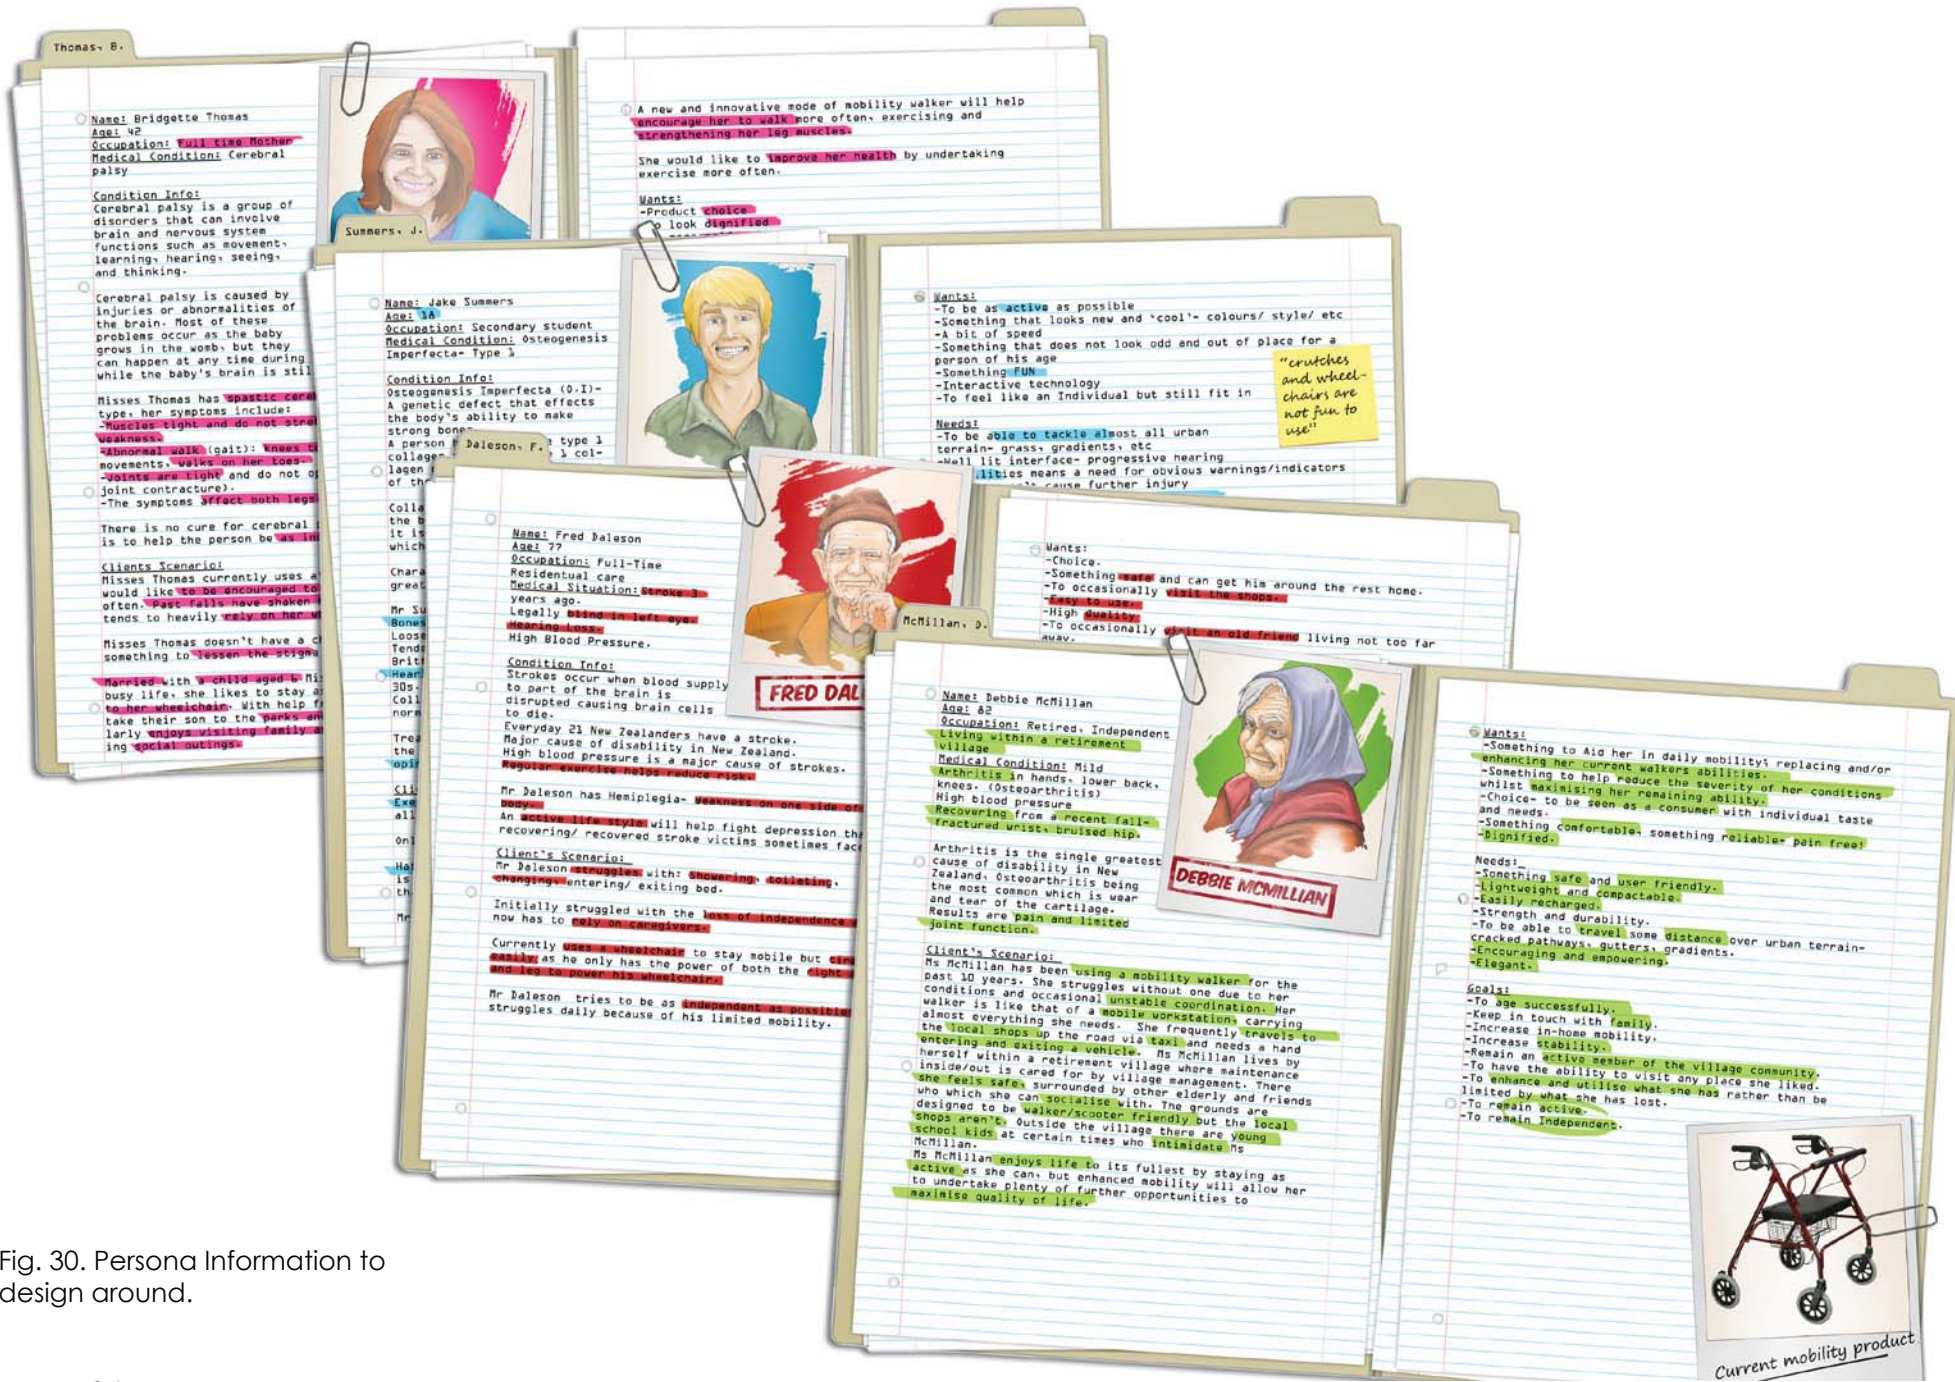 Thomas, B.
Name: Bridgette Thomas
Age: 42
Occupation: Full time Mother
Medical Condition: Cerebral
palsy
Condition Info:
Cerebral palsy is a group of
disorders that can involve
brain and nervous system
functions such as movement,
learning, hearing, seeing,
and thinking.
Cerebral palsy is caused by
injuries or abnormalities of
the brain. Most of these
problems occur as the baby
grows in the womb, but they
can happen at any time during
while the baby's brain is
Misses Thomas has spastic
type, her symptoms include:
-Muscles tight and do not
weakness.
-Abnormal walk (gait): knees
movements, walks on her toes.
-Joints are tight and do not
joint contracture).
-The symptoms affect both legs
There is no cure for cerebral
is to help the person be as
Clients Scenario:
Misses Thomas currently uses
would like to be encouraged to
often. Past falls have shaken
tends to heavily rely on her
Misses Thomas doesn't have a
something to lessen the stigma
Married with a child aged 6
busy life, she likes to stay
to her wheelchair. With help
take their son to the parks
larly enjoys visiting family
ing social outings.
A new and innovative mode of mobility walker will help
encourage her to walk more often, exercising and
strengthening her leg muscles.
She would like to improve her health by undertaking
exercise more often.
Wants:
-Product choice
look dignified
Summers, J.
Name: Jake Summers
Age: 18
Occupation: Secondary student
Medical Condition: Osteogenesis
Imperfecta- Type 1
Condition Info:
Osteogenesis Imperfecta (O.I)-
A genetic defect that effects
the body's ability to make
strong
A person type 1
collagen 1 col-
lagen
of
Colla
the
it is
which
Chara
great
Mr Su
Bones
Loose
Tend
Britt
Hear
30s.
Coll
norm
Trea
the
opin
Cli
Exe
all
Onl
Ha
is
th
Mr
Wants:
-To be as active as possible
-Something that looks new and 'cool'- colours/ style/ etc
-A bit of speed
-Something that does not look odd and out of place for a
person of his age
-Something FUN
-Interactive technology
-To feel like an Individual but still fit in
"crutches
and wheel-
chairs are
not fun to
use"
Needs:
-To be able to tackle almost all urban
terrain- grass, gradients, etc
-Well lit interface- progressive hearing
lities means a need for obvious warnings/indicators
cause further injury
Daleson, F.
Name: Fred Daleson
Age: 77
Occupation: Full-Time
Residentual care
Medical Situation: Stroke 3
years ago.
Legally blind in left eye.
Hearing Loss.
High Blood Pressure.
Condition Info:
Strokes occur when blood supply
to part of the brain is
disrupted causing brain cells
to die.
Everyday 21 New Zealanders have a stroke.
Major cause of disability in New Zealand.
High blood pressure is a major cause of strokes.
Regular exercise helps reduce risk.
Mr Daleson has Hemiplegia- Weakness on one side of
body.
An active life style will help fight depression
recovering/ recovered stroke victims sometimes face
Client's Scenario:
Mr Daleson struggles with: Showering, toileting,
changing, entering/ exiting bed.
Initially struggled with the loss of independence
now has to rely on caregivers.
Currently uses a wheelchair to stay mobile but
easily as he only has the power of both the right
and leg to power his wheelchair.
Mr Daleson tries to be as independent as possible
struggles daily because of his limited mobility.
FRED DAL
Wants:
-Choice.
-Something safe and can get him around the rest home.
-To occasionally visit the shops.
-Easy to use.
-High Quality
-To occasionally visit an old friend living not too far
away.
McMillan, D.
Name: Debbie McMillan
Age: 82
Occupation: Retired, Independent
Living within a retirement
village
Medical Condition: Mild
Arthritis in hands, lower back,
knees. (Osteoarthritis)
High blood pressure
Recovering from a recent fall-
fractured wrist, bruised hip.
Arthritis is the single greatest
cause of disability in New
Zealand, Osteoarthritis being
the most common which is wear
and tear of the cartilage.
Results are pain and limited
joint function.
Client's Scenario:
Ms McMillan has been using a mobility walker for the
past 10 years. She struggles without one due to her
conditions and occasional unstable coordination. Her
walker is like that of a mobile workstation, carrying
almost everything she needs. She frequently travels to
the local shops up the road via taxi and needs a hand
entering and exiting a vehicle. Ms McMillan lives by
herself within a retirement village where maintenance
inside/out is cared for by village management. There
she feels safe, surrounded by other elderly and friends
who which she can socialise with. The grounds are
designed to be walker/scooter friendly but the local
shops aren't. Outside the village there are young
school kids at certain times who intimidate Ms
McMillan.
Ms McMillan enjoys life to its fullest by staying as
active as she can, but enhanced mobility will allow her
to undertake plenty of further opportunities to
maximise quality of life.
DEBBIE MCMILLIAN
Wants:
-Something to Aid her in daily mobility; replacing and/or
enhancing her current walkers abilities.
-Something to help reduce the severity of her conditions
whilst maximising her remaining ability.
-Choice- to be seen as a consumer with individual taste
and needs.
-Something comfortable, something reliable- pain free!
-Dignified.
Needs:
-Something safe and user friendly.
-Lightweight and compactable.
-Easily recharged.
-Strength and durability.
-To be able to travel some distance over urban terrain-
cracked pathways, gutters, gradients.
-Encouraging and empowering.
-Elegant.
Goals:
-To age successfully.
-Keep in touch with family.
-Increase in-home mobility.
-Increase stability.
-Remain an active member of the village community.
-To have the ability to visit any place she liked.
-To enhance and utilise what she has rather than be
limited by what she has lost.
-To remain active.
-To remain Independent.
Current mobility product
Fig. 30. Persona Information to
design around.